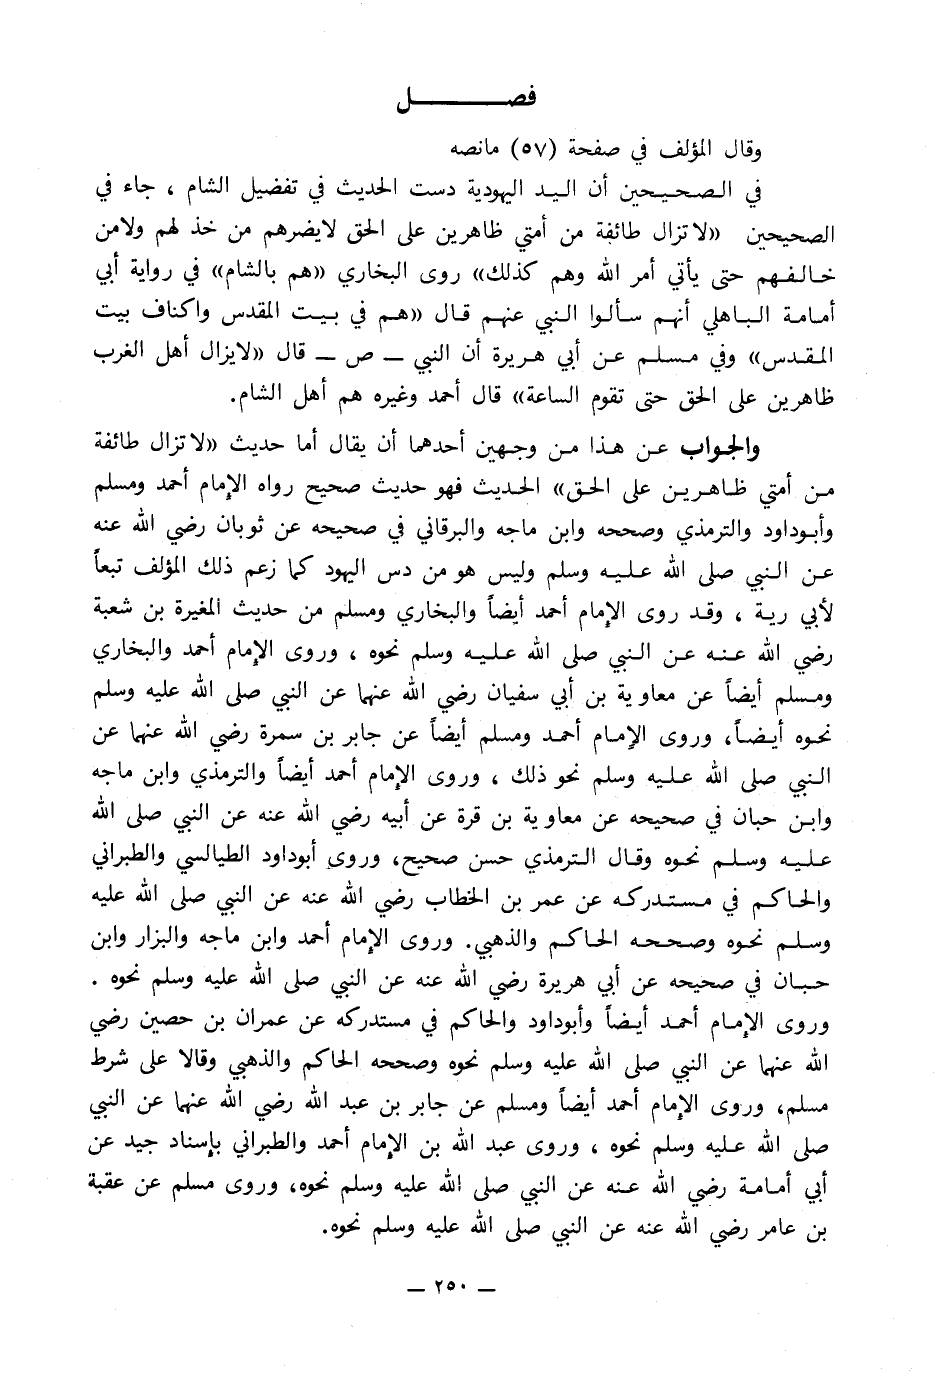 فصــــــل
وقال المؤلف في صفحة (٥٧) مانصه
في الصحيحين أن اليد اليهودية دست الحديث في تفضيل الشام ، جاء في
الصحيحين «لا تزال طائفة من أمتي ظاهرين على الحق لايضرهم من خذ لهم ولامن
خالفهم حتى يأتي أمر الله وهم كذلك» روى البخاري «هم بالشام» في رواية أبي
أمامة الباهلي أنهم سألوا النبي عنهم قال «هم في بيت المقدس واكناف بيت
المقدس» وفي مسلم عن أبي هريرة أن النبي ــ ص ــ قال «لايزال أهل الغرب
ظاهرين على الحق حتى تقوم الساعة» قال أحمد وغيره هم أهل الشام.
والجواب عن هذا من وجهين أحدهما أن يقال أما حديث «لا تزال طائفة
من أمتي ظاهرين على الحق» الحديث فهو حديث صحيح رواه الإمام أحمد ومسلم
وأبوداود والترمذي وصححه وابن ماجه والبرقاني في صحيحه عن ثوبان رضي الله عنه
عن النبي صلى الله عليه وسلم وليس هو من دس اليهود كما زعم ذلك المؤلف تبعاً
لأبي رية ، وقد روى الإمام أحمد أيضاً والبخاري ومسلم من حديث المغيرة بن شعبة
رضي الله عنه عن النبي صلى الله عليه وسلم نحوه ، وروى الإمام أحمد والبخاري
ومسلم أيضاً عن معاوية بن أبي سفيان رضي الله عنهما عن النبي صلى الله عليه وسلم
نحوه أيضاً، وروى الإمام أحمد ومسلم أيضاً عن جابر بن سمرة رضي الله عنهما عن
النبي صلى الله عليه وسلم نحو ذلك ، وروى الإمام أحمد أيضاً والترمذي وابن ماجه
وابن حبان في صحيحه عن معاوية بن قرة عن أبيه رضي الله عنه عن النبي صلى الله
عليه وسلم نحوه وقال الترمذي حسن صحيح، وروى أبوداود الطيالسي والطبراني
والحاكم في مستدركه عن عمر بن الخطاب رضي الله عنه عن النبي صلى الله عليه
وسلم نحوه وصححه الحاكم والذهبي. وروى الإمام أحمد وابن ماجه والبزار وابن
حبان في صحيحه عن أبي هريرة رضي الله عنه عن النبي صلى الله عليه وسلم نحوه .
وروى الإمام أحمد أيضاً وأبوداود والحاكم في مستدركه عن عمران بن حصين رضي
الله عنهما عن النبي صلى الله عليه وسلم نحوه وصححه الحاكم والذهبي وقالا على شرط
مسلم، وروى الإمام أحمد أيضاً ومسلم عن جابر بن عبد الله رضي الله عنهما عن النبي
صلى الله عليه وسلم نحوه ، وروى عبد الله بن الإمام أحمد والطبراني بإسناد جيد عن
أبي أمامة رضي الله عنه عن النبي صلى الله عليه وسلم نحوه، وروى مسلم عن عقبة
بن عامر رضي الله عنه عن النبي صلى الله عليه وسلم نحوه.
ــ ٢٥٠ ــ